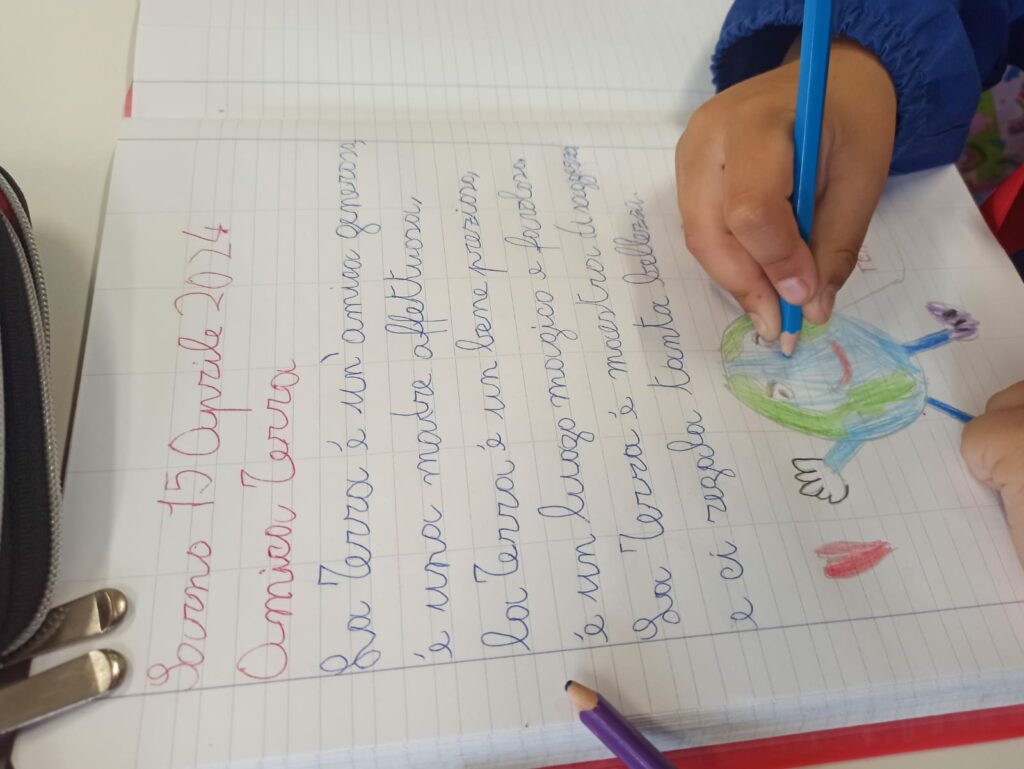 Sarno 15 Aprile 2024
Amica Terra
La Terra é un'amica generosa,
é una madre affettuosa,
la Terra é un bene prezioso,
é un luogo magico e favoloso.
La Terra é maestra di saggezza
e ci regala tanta bellezza.